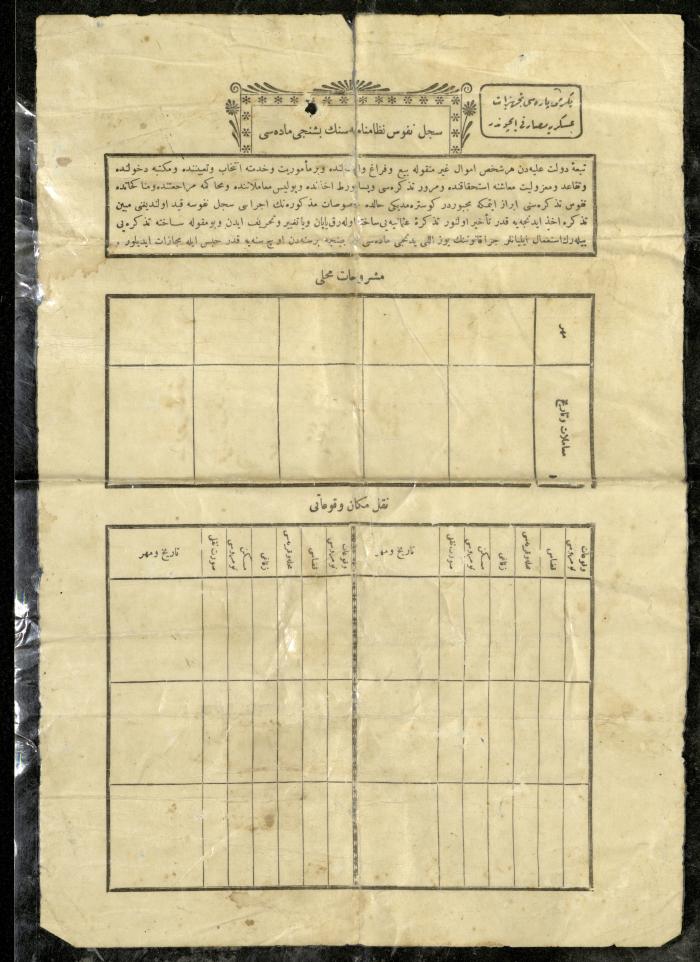 یكرمی پاره‌سی تجهیزات
عسكریه مصارفی ایچوندر
سجل نفوس نظامنامه‌سنك بشنجی ماده‌سی
تبعهٔ دولت علیه‌دن هر شخص اموال غیر منقوله بیع و فراغ و نده و بر مأموریت و خدمته انتخاب و تعییننده و مكتبه دخولنده
و تقاعد و معزولیت معاشنه استحقاقنده و مرور تذكره‌سی و پساپورط اخذنده و پولیس معاملاتنده و محاكمه مراجعتنده و مناكحاتده
نفوس تذكره‌سنی ابراز ایتمكه مجبوردر كوسترمدیكی حالده خصوصات مذكوره‌نك اجراسی سجل نفوسه قید اولندیغنی مبین
تذكره اخذ ایدنجه‌یه قدر تأخیر اولنور تذكرهٔ عثمانیه‌یی ساخته اوله‌رق یاپان و یا تغییر و تحریف ایدن و بو مقوله ساخته تذكره‌یی
بیله‌رك استعمال ایلیانلر جزا قانوننك یوز اللی یدنجی ماده‌سی بنجه بر سنه‌دن اوچ سنه‌یه قدر حبس ایله مجازات ایدیلور .
مشروحات محلی
مهر
معاملات و تاریخ
نقل مكان وقوعاتی
وقوعات نومروسی
قضاسی
محله و قریه‌سی
زقاغی
مسكن نومروسی
صورت نقلی
تاریخ و مهر
وقوعات نومروسی
قضاسی
محله و قریه‌سی
زقاغی
مسكن نومروسی
صورت نقلی
تاریخ و مهر